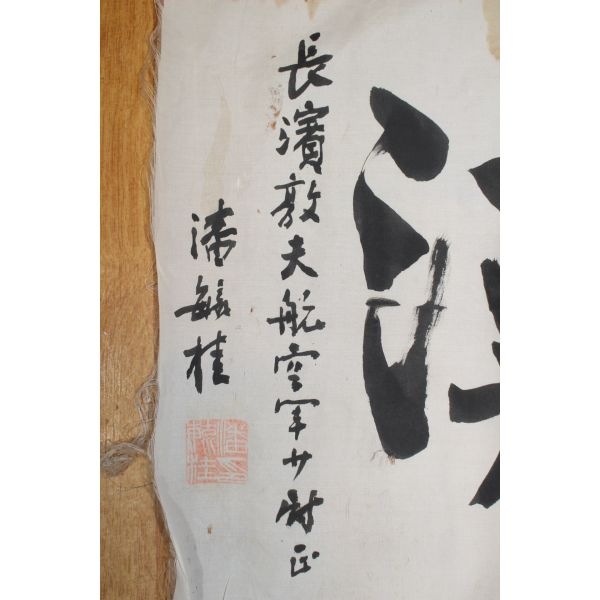 長濱敦夫航空軍少尉正
潘毓桂